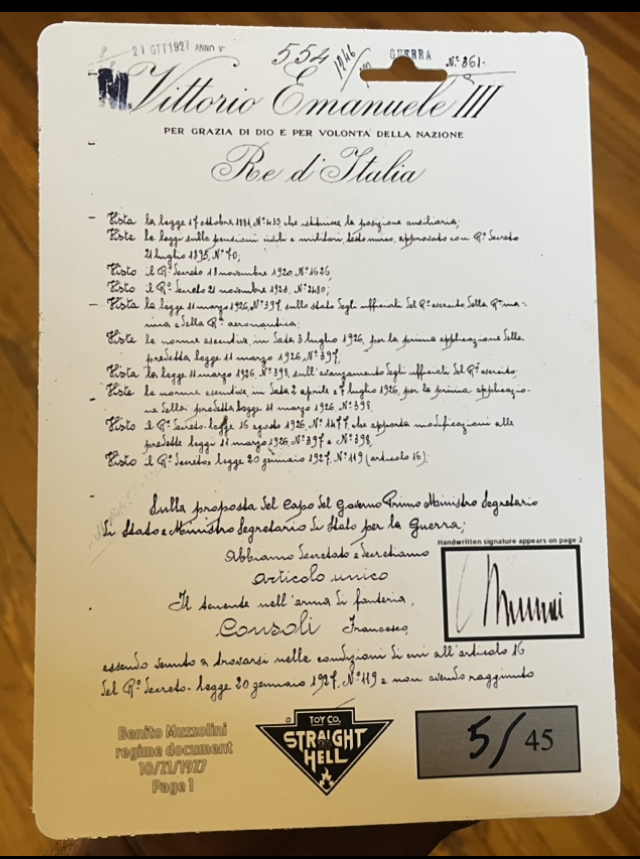 21 OTT 1927 ANNO V°
554
1246
GUERRA
N° 361.
M
Vittorio Emanuele III
PER GRAZIA DI DIO E PER VOLONTA' DELLA NAZIONE
Re d'Italia
Vista la legge 17 ottobre 1881, N° 435 che istituisce la posizione ausiliaria;
Viste le leggi sulle pensioni civili e militari, testo unico, approvato con R° Decreto
21 luglio 1895, N° 70;
Visto il R° Decreto 18 novembre 1920, N° 1626;
Visto il R° Decreto 21 novembre 1923, N° 2480;
Vista la legge 11 marzo 1926, N° 397 sullo stato degli ufficiali del R° esercito, della R° ma-
rina e della R° aeronautica;
Viste le norme esecutive, in data 3 luglio 1926, per la prima applicazione della
predetta legge 11 marzo 1926, N° 397,
Vista la legge 11 marzo 1926, N° 398, sull'avanzamento degli ufficiali del R° esercito,
Viste le norme esecutive, in data 2 aprile e 7 luglio 1926, per la prima applicazio-
ne della predetta legge 11 marzo 1926, N° 398,
Visto il R° Decreto-legge 16 agosto 1926, N° 1477, che apporta modificazioni alle
predette leggi 11 marzo 1926, N° 397 e N° 398,
Visto il R° Decreto legge 20 gennaio 1927, N° 119 (articolo 16).
Sulla proposta del Capo del Governo Primo Ministro Segretario
di Stato e Ministro Segretario di Stato per la Guerra;
Handwritten signature appears on page 2
Abbiamo decretato e decretiamo
Articolo unico
Il tenente nell'arma di fanteria,
Consoli Francesco,
essendo venuto a trovarsi nelle condizioni di cui all'articolo 16
del R° Decreto-legge 20 gennaio 1927, N° 119 e non avendo raggiunto
Benito Muzzolini
regime document
10/21/1927
Page 1
TOY CO.
STRAIGHT
TO
HELL
5/45